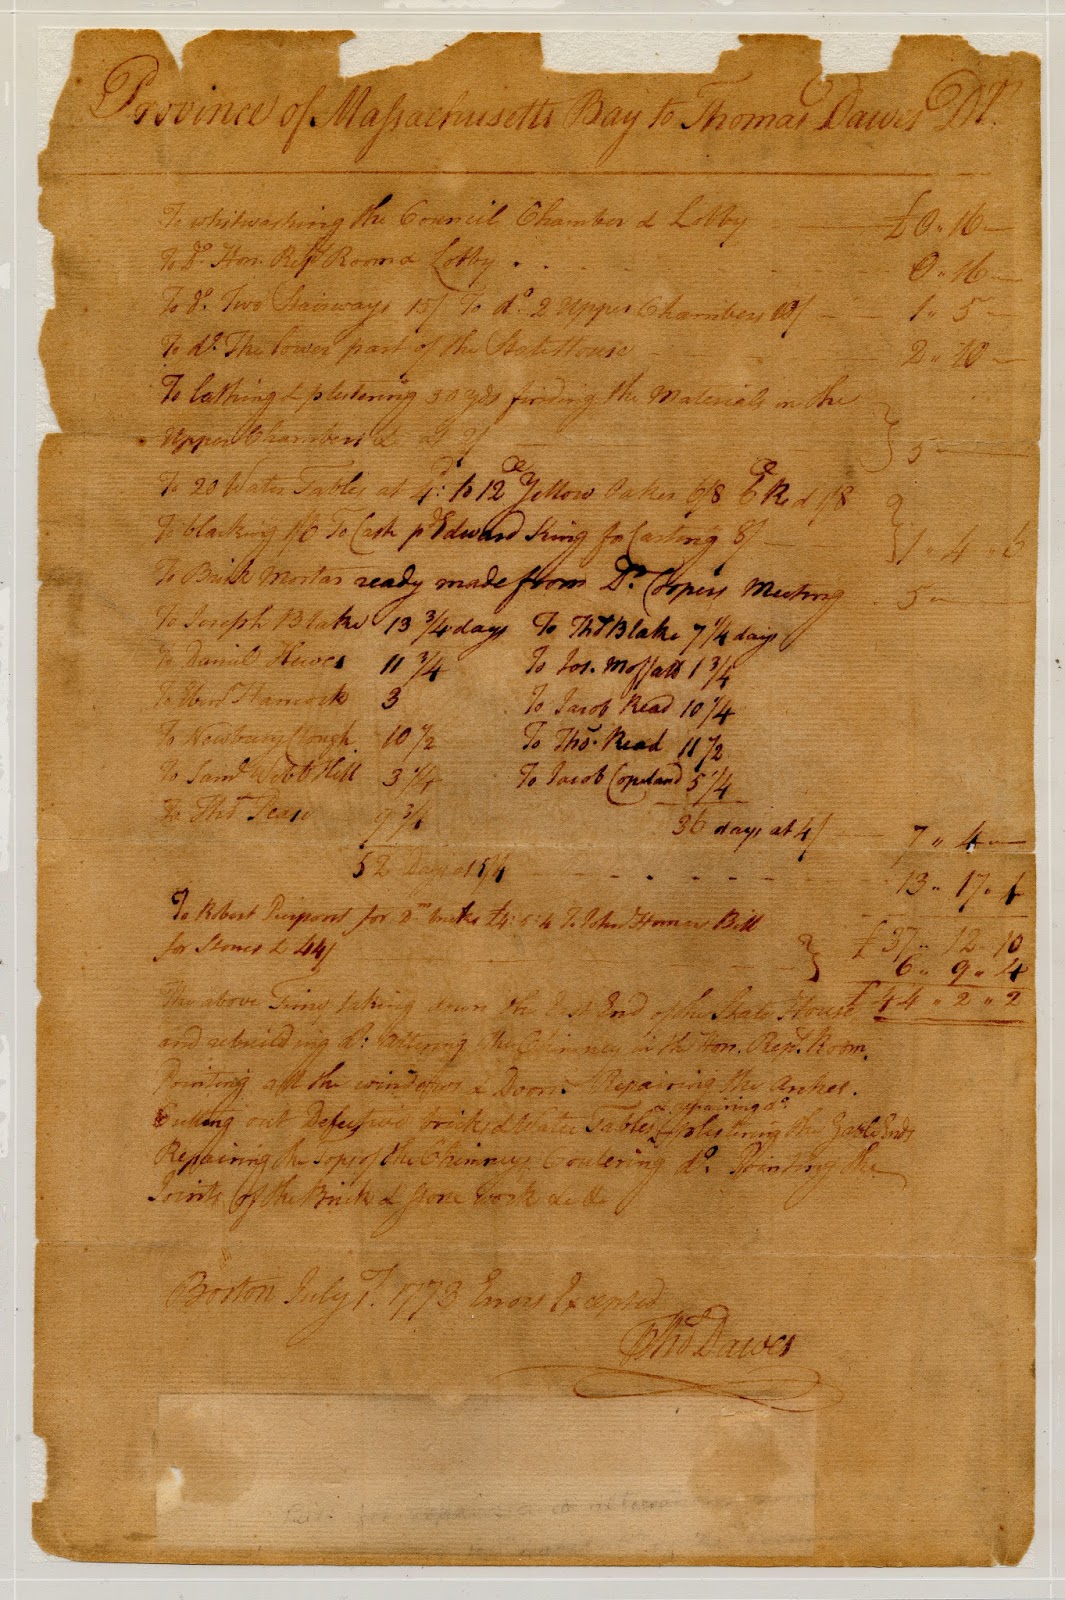 Province of Massachusetts Bay to Thomas Dawes Dr.
To whitwashing the Council Chamber & Lobby £0 " 16 —
To Do. Hon. Rept Room & Lobby 0 " 16 —
To do. Two Stairways 15/ To do. 2 Upper Chambers 10/ 1 " 5 —
To do. The lower part of the State House 2 " 10 —
To lathing & plastering 30 yds finding the Materials in the
Upper Chambers & 2/ 5 —
To 20 Water Tables at 4/. to 12 Yellow Oaker 6/8 Red 1/8
To blacking To Cash pd Edward King for Carting 8/ 1 " 4 "
To Brick Mortar ready made from Dr. Coopers Meeting 5 —
To Joseph Blake 13 3/4 days To Thos Blake 7 1/4 days
To Daniel Hewes 11 3/4 To Jos. Moffatt 1 3/4
3 To Jacob Read 10 1/4
To Newbury Clough 10 1/2 To Thos. Read 11 1/2
To Saml Webb Hill 3 1/4 To Jacob Copeland 5 1/4
To Thos 9 3/4 36 days at 4/ 7 " 4 —
52 Days at 5/4 13 " 17 " 4
To Robert Pierpont for Dm bricks £4:5:4 To John Homer Bill £37 " 12 " 10
for Stones & 44/ 6 " 9 " 4
The above Time taking down the East End of the State House £44 " 2 " 2
and rebuilding do: Altering the Chimney in the Hon. Rept. Room.
Pointing all the windows & Doors. Repairing the Arches.
& repairing do.
Cutting out Defective bricks & Water Tables plastering the Gable Ends
Repairing the Tops of the Chimneys, Coulering do. Pointing the
Joints of the Brick & Stone Work &c &c
Boston July 1. 1773 Errors Excepted
Thos Dawes